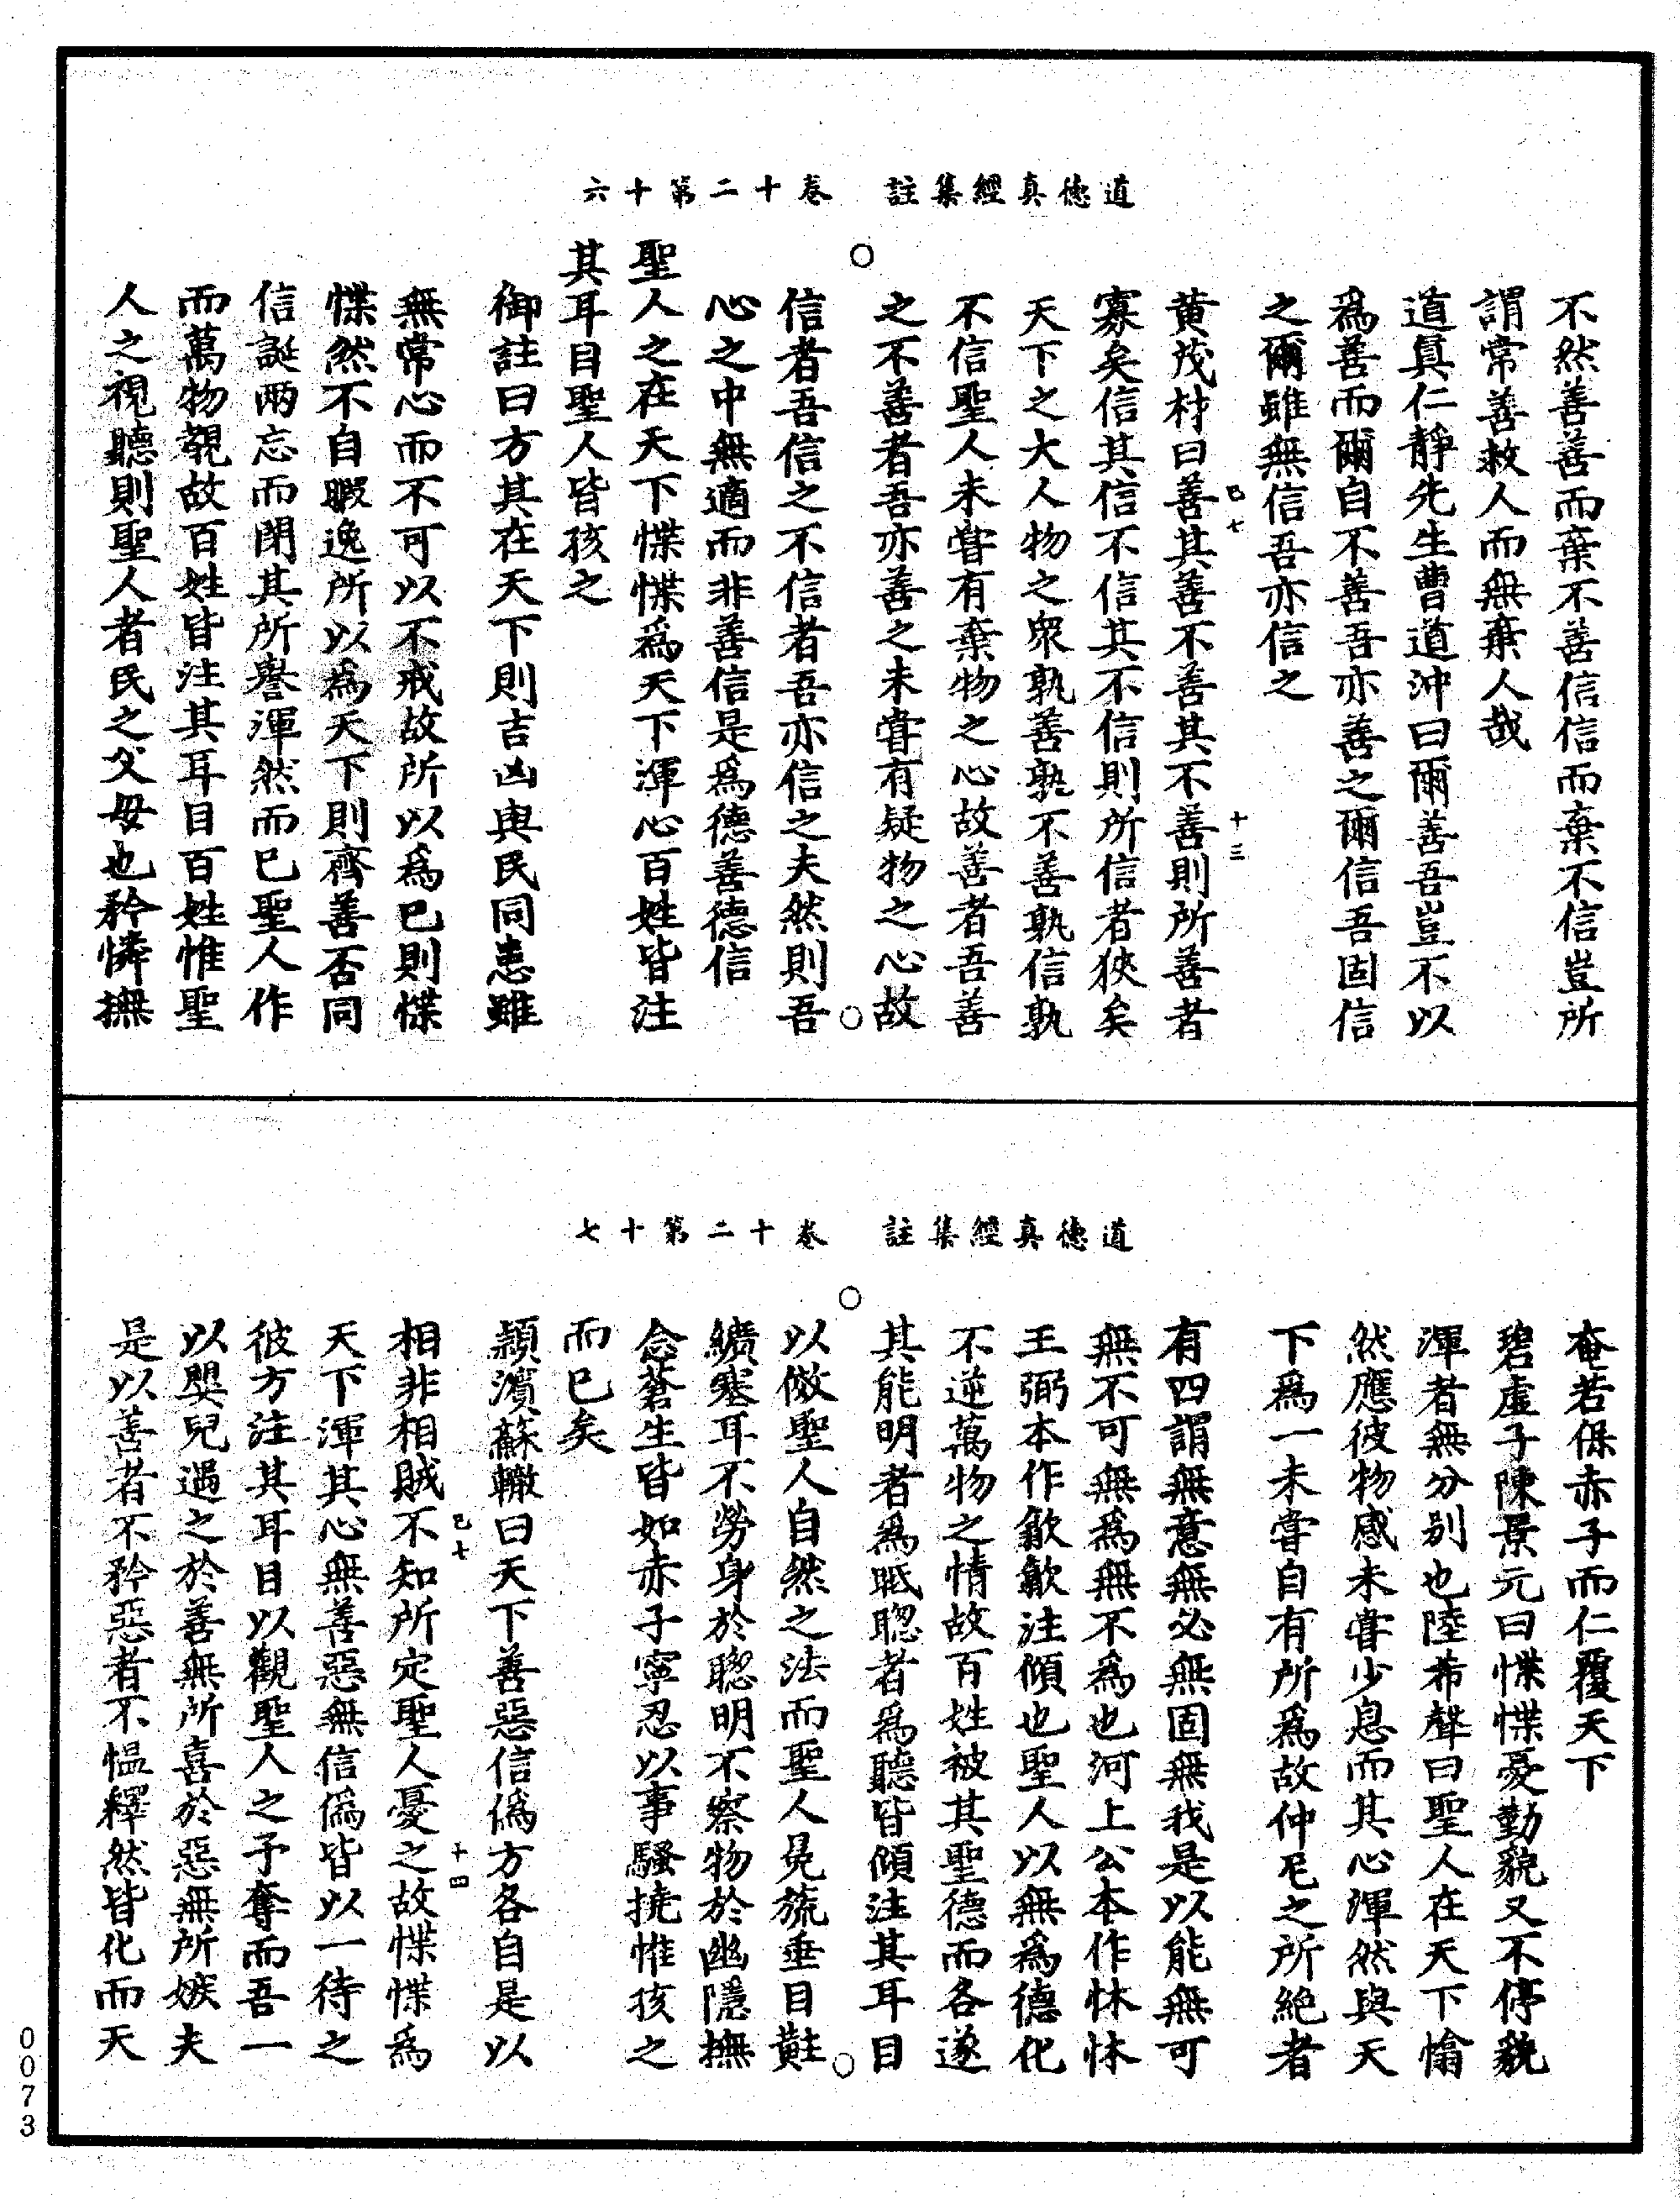 道德真經集註　卷十二第十六
不然善善而棄不善信信而棄不信豈所
謂常善救人而無棄人哉
道真仁靜先生曹道沖曰爾善吾豈不以
爲善而爾自不善吾亦善之爾信吾固信
之爾雖無信吾亦信之
黃茂材曰善其善不善其不善則所善者
己七
十三
寡矣信其信不信其不信則所信者狹矣
天下之大人物之衆孰善孰不善孰信孰
不信聖人未甞有棄物之心故善者吾善
之不善者吾亦善之未甞有疑物之心故
信者吾信之不信者吾亦信之夫然則吾
心之中無適而非善信是爲德善德信
聖人之在天下惵惵爲天下渾心百姓皆注
其耳目聖人皆孩之
御註曰方其在天下則吉凶與民同患雖
無常心而不可以不戒故所以爲己則惵
惵然不自暇逸所以爲天下則齊善否同
信誕兩忘而閉其所譽渾然而已聖人作
而萬物覩故百姓皆注其耳目百姓惟聖
人之視聽則聖人者民之父母也矜憐撫
道德真經集註　卷十二第十七
奄若保赤子而仁覆天下
碧虛子陳景元曰惵惵憂勤貌又不停貌
渾者無分别也陸希聲曰聖人在天下愉
然應彼物感未甞少息而其心渾然與天
下爲一未甞自有所爲故仲尼之所絶者
有四謂無意無必無固無我是以能無可
無不可無爲無不爲也河上公本作怵怵
王弼本作歙歙注傾也聖人以無爲德化
不逆萬物之情故百姓被其聖德而各遂
其能明者爲眡聰者爲聽皆傾注其耳目
以倣聖人自然之法而聖人冕旒垂目黈
纊塞耳不勞身於聰明不察物於幽隱撫
念蒼生皆如赤子寧忍以事騷撓惟孩之
而已矣
穎濱蘇轍曰天下善惡信僞方各自是以
相非相賊不知所定聖人憂之故惵惵爲
己七
十四
天下渾其心無善惡無信僞皆以一待之
彼方注其耳目以觀聖人之予奪而吾一
以嬰兒遇之於善無所喜於惡無所嫉夫
是以善者不矜惡者不愠釋然皆化而天
0073